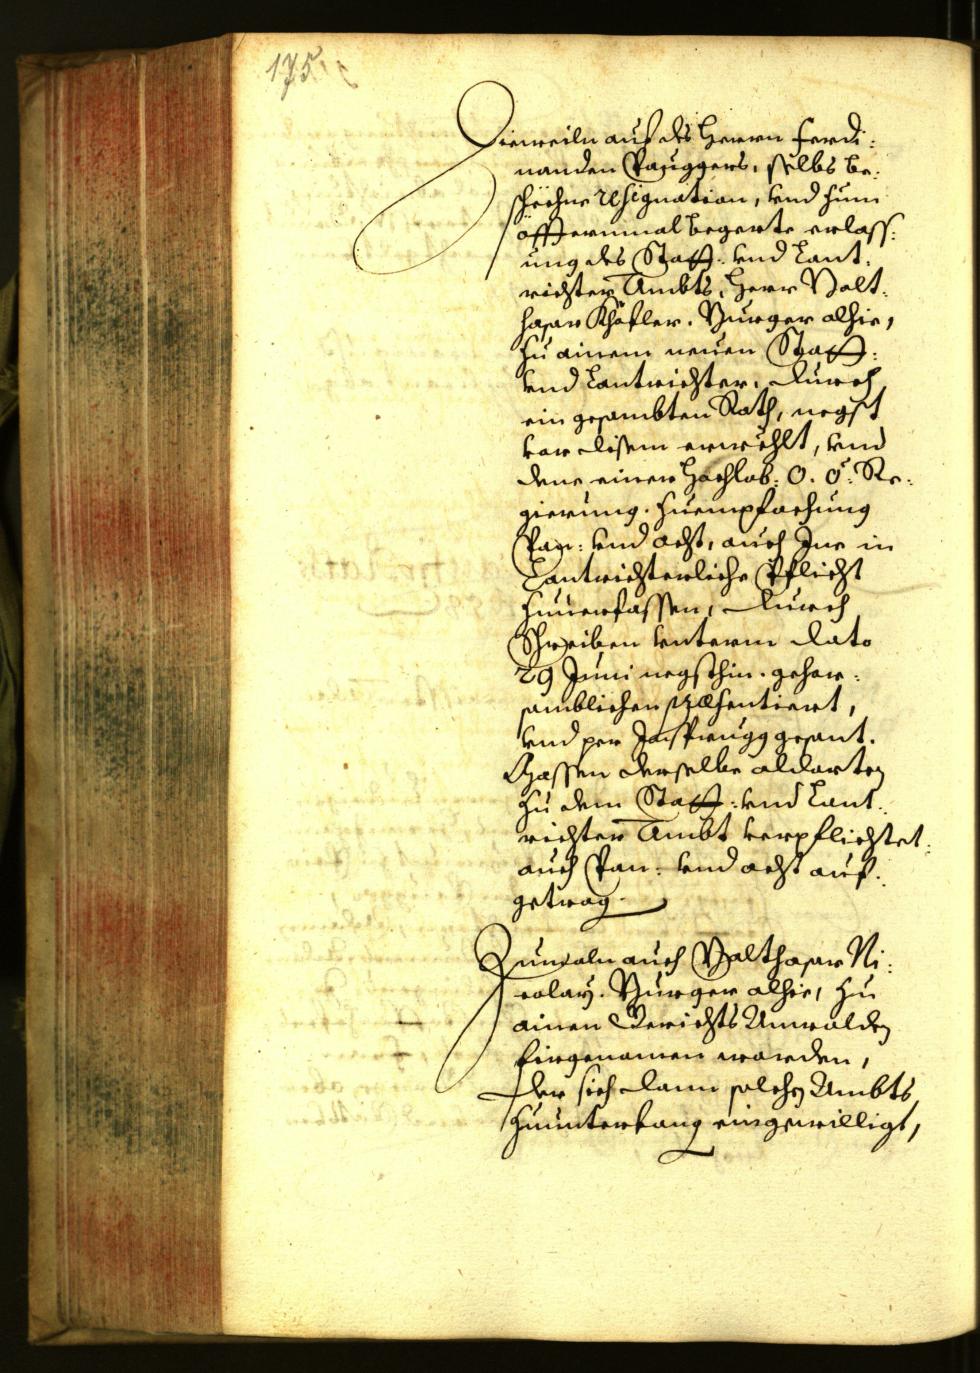 175
Dieweiln auf des Herrn Ferdi:
nanden Pauggers, selbs be:
schechne resignation, vnd zum
öfftermal begerte erlass:
ung des Statt: vnd Lant:
richter Ambts, Herr Balt:
hasar Khöfler. Burger alhie,
zu ainem neuen Statt:
vnd Lantrichter, durch
ein gesambten Rath, negst
vor disem erwehlt, vnd
dene einer Hochlob: O: Ö: Re:
gierung. zuempfachung
Pan: vnd acht, auch Ine in
Lantrichterliche Pflicht
zuuerfassen, durch
Schreiben vnterm dato
29 Juni negsthin. gehor:
samblichen præsentiert,
vnd per Insprugg gesant.
Massen derselbe aldorten
zu dem Statt: vnd Lant:
richter Ambt verpflichtet:
auch Pan: vnd acht auf:
getrag.
Zumaln auch Balthasar Ni:
colay. Burger alhie, zu
ainen Gerichts Anwalden
firgenomen worden,
der sich dann solches Ambts
zuunterfang eingewilligt,